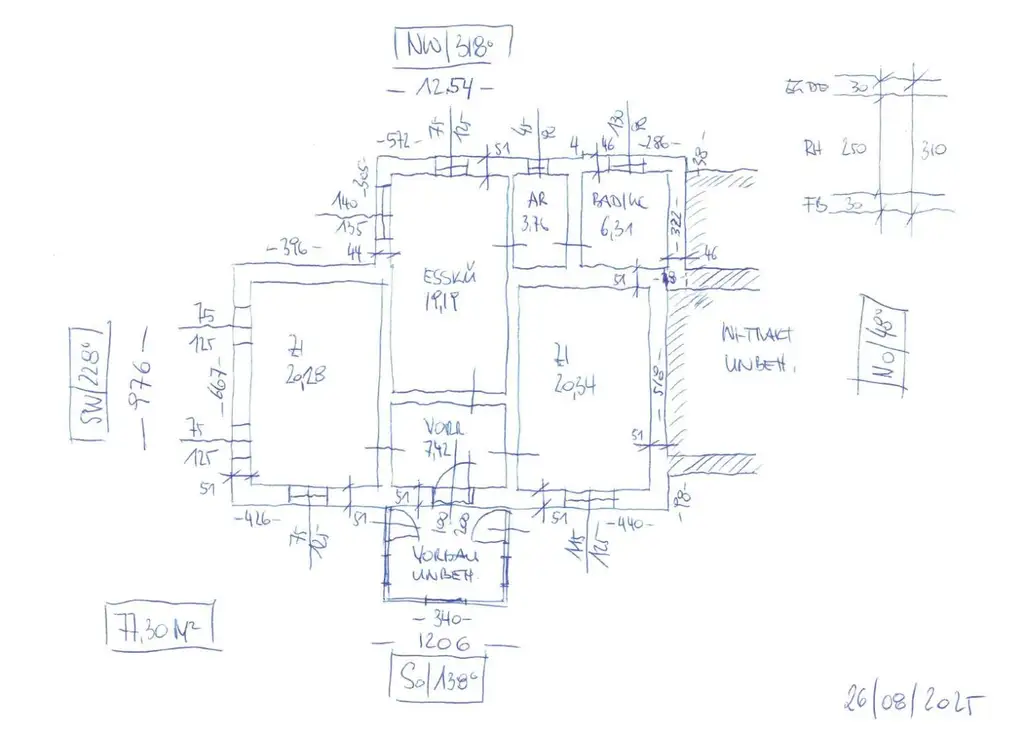 NW/318°
12,54
-572-
75
125
51
45
90
4
46
130
90
-286-
-38-
30
RH 250 310
FB 30
-305-
140
135
-396-
44
AR
3,76
BAD/WC
6,31
-322-
46
ESSKÜ
19,19
51
-78-
75
125
SW/228°
-976-
-667-
ZI
20,28
ZI
20,34
-518-
WI-TRAKT
UNBEH.
NO/48°
75
125
51
VORR
7,42
51
-426-
75
125
51
51
200
51
115
125
-440-
-78-
VORBAU
UNBEH.
-340-
1206
SO/138°
77,30 M²
26/08/2025